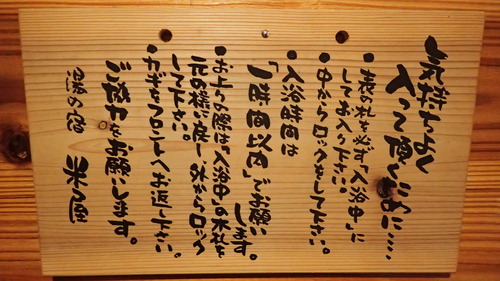 気持ちよく
入って頂くために……
・表の札を必ず「入浴中」に
してお入り下さい。
・中からロックをして下さい。
・入浴時間は
「一時間以内」でお願い
します。
・お上りの際は「入浴中」の木札を
元の様に戻し、外からロック
して下さい。
・カギをフロントへお返し下さい。
ご協力をお願いします。
湯の宿 米屋